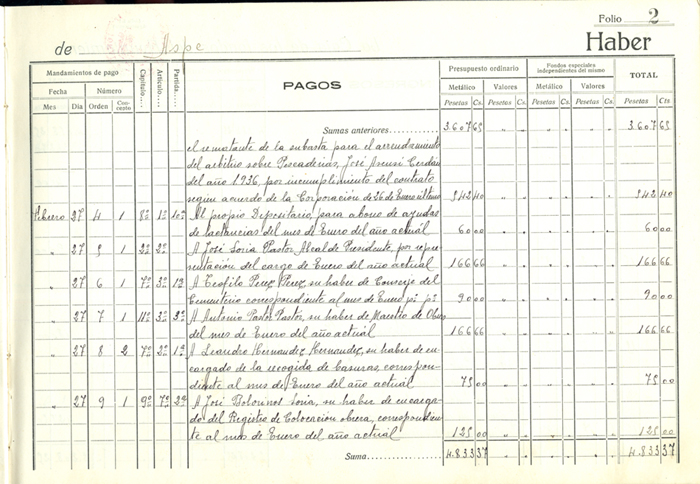 Folio 2
de Aspe Haber
Mandamientos de pago Capítulo... Artículo... Partida... PAGOS Presupuesto ordinario Fondos especiales independientes del mismo TOTAL
Fecha Número Metálico Valores Metálico Valores
Mes Día Orden Concepto Pesetas Cs. Pesetas Cs. Pesetas Cs. Pesetas Cs. Pesetas Cts
Sumas anteriores 3.607 65 " " " " " " 3.607 65
el rematante de la subasta para el arrendamiento
del arbitrio sobre Pescaderias, José Asensi Cerdán
del año 1936, por incumplimiento del contrato
según acuerdo de la Corporación de 26 de Enero último 542 40 " " " " " " 542 40
Febrero 27 4 1 8º 1º 10º Al propio Depositario, para abono de ayudas
de lactancias del mes de Enero del año actuál 60 00 " " " " " " 60 00
" 27 5 1 2º 2º A José Soria Pastor Alcalde Presidente, por repre-
sentación del cargo de Enero del año actuál 166 66 " " " " " " 166 66
" 27 6 1 7º 3º 1º A Teofilo Perez Perez, su haber de Conserje del
Cementerio correspondiente al mes de Enero 90 00 " " " " " " 90 00
" 27 7 1 11º 3º 2º A Antonio Pastor Pastor, su haber de Maestro de Obras
del mes de Enero del año actuál 166 66 " " " " " " 166 66
" 27 8 2 7º 2º 1º A Leandro Hernandez Hernandez, su haber de en-
cargado de la recogida de basuras, correspon-
diente al mes de Enero del año actuál 75 00 " " " " " " 75 00
" 27 9 1 9º 7º 2º A José Botorinot Soria, su haber de encarga-
do del Registro de Colocación obrera, correspondien-
te al mes de Enero del año actuál 125 00 " " " " " " 125 00
Suma 4.833 37 " " " " " " 4.833 37